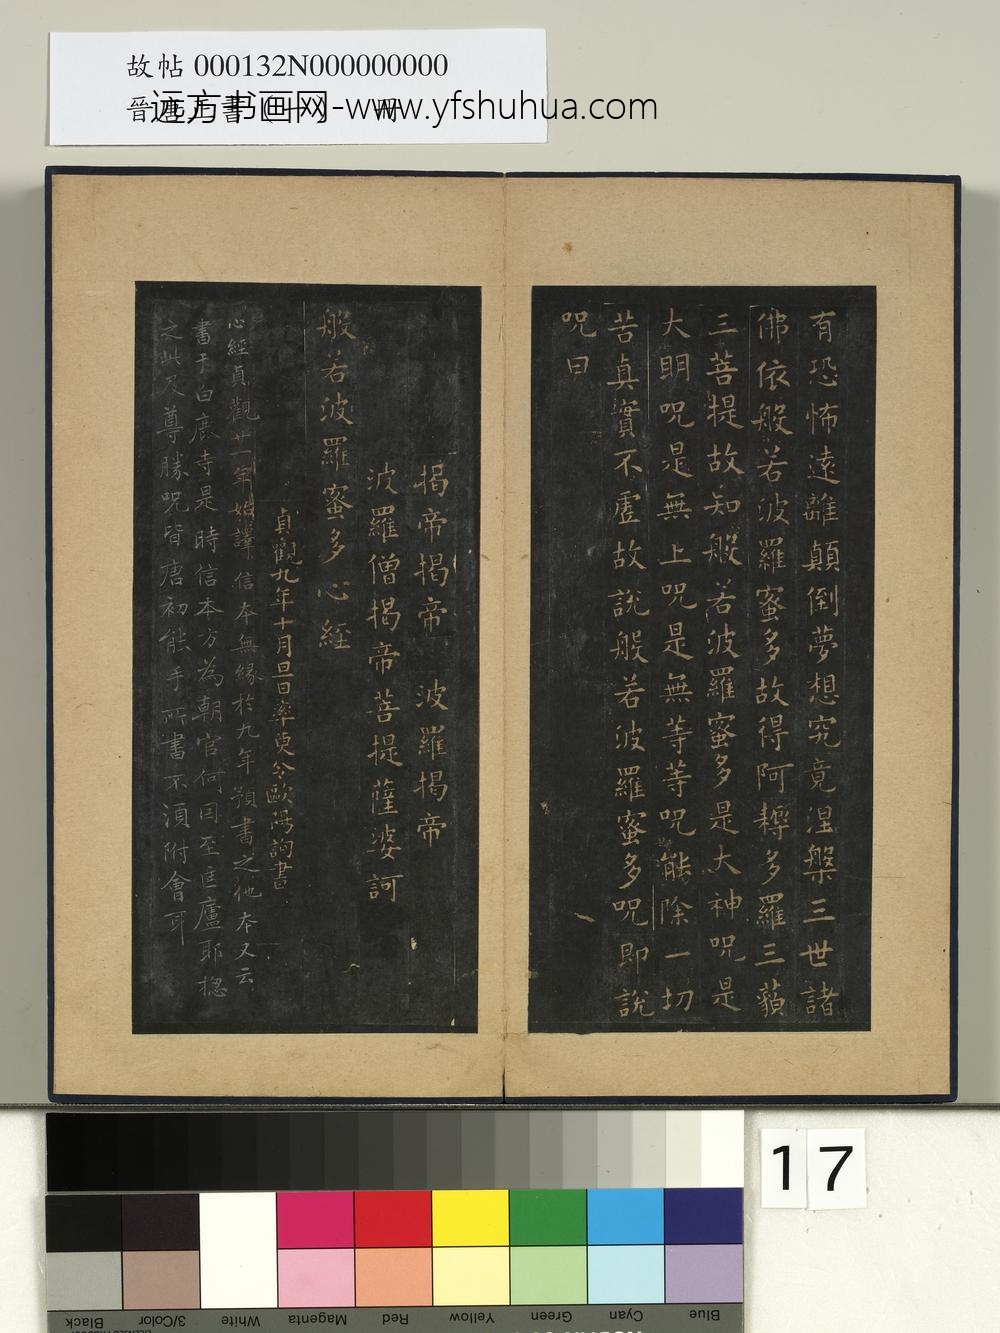 故帖 000132N000000000
远方书画网-www.yfshuhua.com
有恐怖遠離顛倒夢想究竟涅槃三世諸
佛依般若波羅蜜多故得阿耨多羅三藐
三菩提故知般若波羅蜜多是大神呪是
大明呪是無上呪是無等等呪能除一切
苦真實不虛故說般若波羅蜜多呪即說
呪曰
揭帝揭帝 波羅揭帝
波羅僧揭帝菩提薩婆訶
般若波羅蜜多心經
貞觀九年十月旦日率更令歐陽詢書
心經貞觀廿一年始譯信本無緣於九年預書之他本又云
書于白鹿寺是時信本方為朝官何因至匡廬耶揔
之此及尊勝呪皆唐初能手所書不須附會耳
17
Black
3/Color
White
Magenta
Red
Yellow
Green
Cyan
Blue